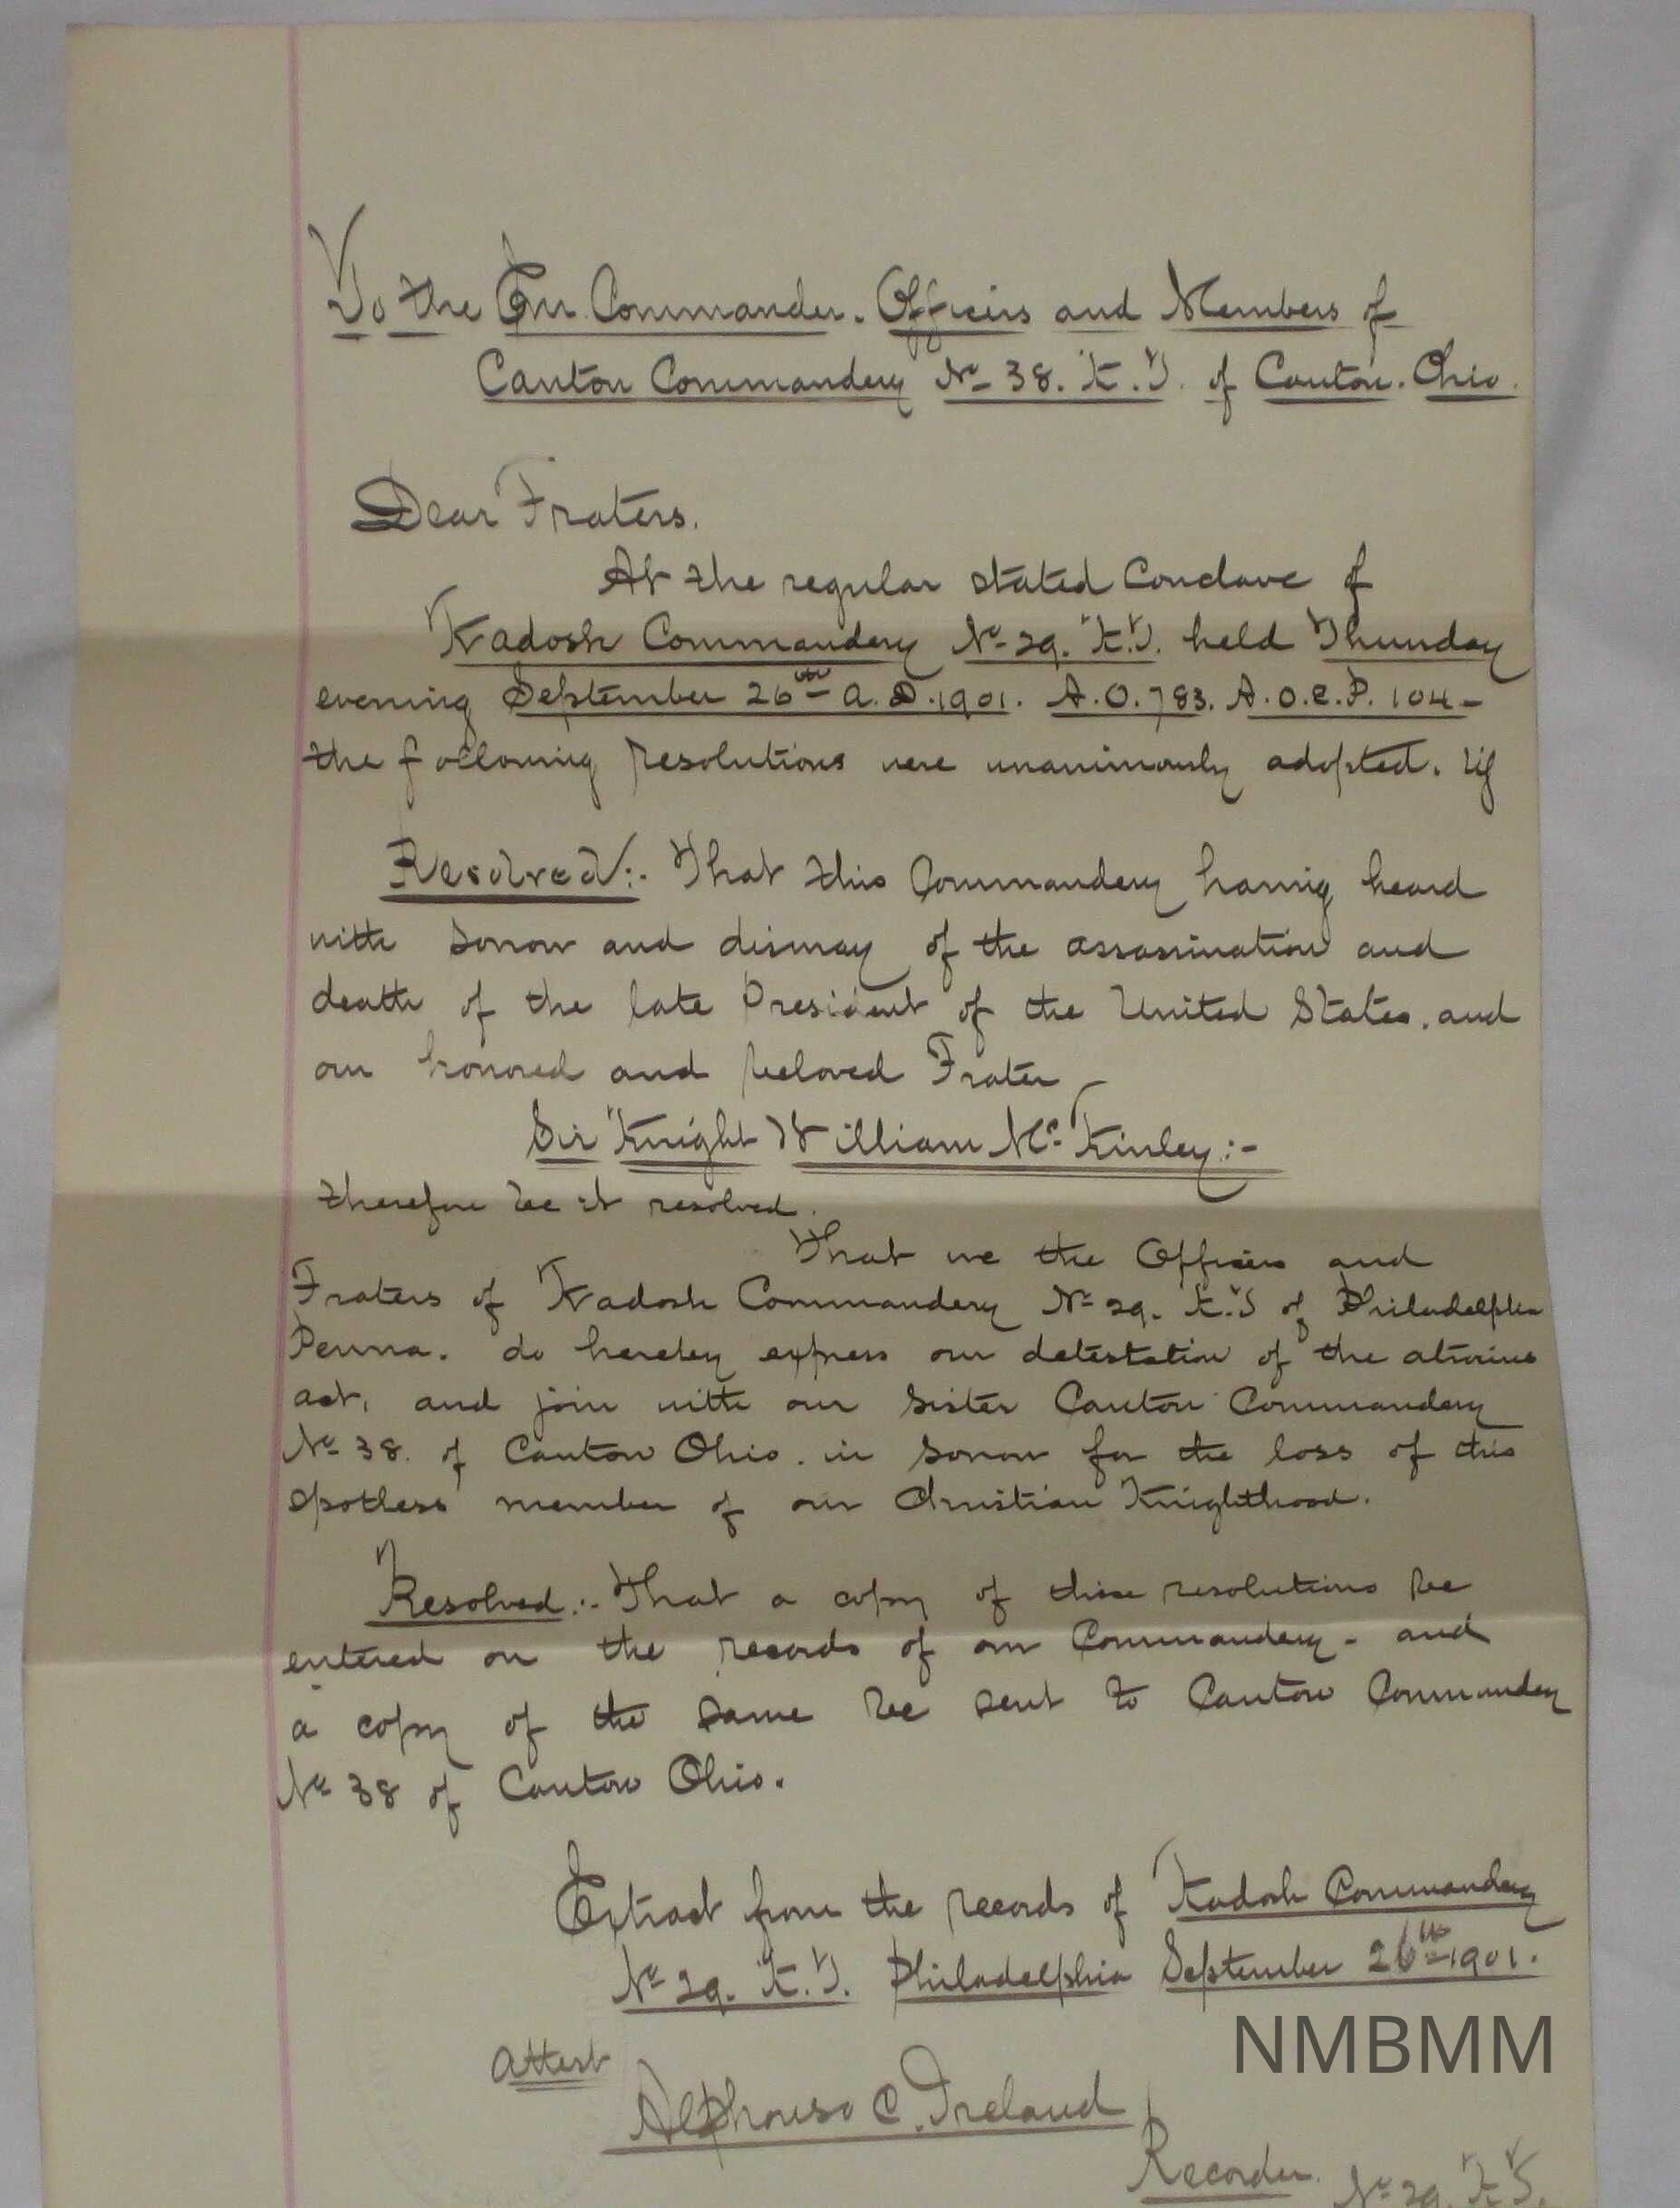 To the Em Commander. Officers and Members of
Canton Commandery No 38. K.T. of Canton. Ohio.
Dear Fraters.
At the regular stated Conclave of
Kadosh Commandery No 29. K.T. held Thursday
evening September 26th A.D. 1901. A.O. 783. A.O.E.P. 104-
the following resolutions were unanimously adopted. viz
Resolved:- That this Commandery having heard
with sorrow and dismay of the assassination and
death of the late President of the United States. and
our honored and beloved Frater
Sir Knight William McKinley:-
therefore be it resolved.
That we the Officers and
Fraters of Kadosh Commandery No 29. K.T of Philadelphia
Penna. do hereby express our detestation of the atrocious
act, and join with our sister Canton Commandery
No 38. of Canton Ohio. in sorrow for the loss of this
spotless member of our Christian Knighthood.
Resolved:- That a copy of these resolutions be
entered on the records of our Commandery- and
a copy of the same be sent to Canton Commandery
No 38 of Canton Ohio.
Extract from the records of Kadosh Commandery
No 29. K.T. Philadelphia September 26th 1901.
NMBMM
Attest
Alphonso C. Ireland
Recorder. No 29. K.T.